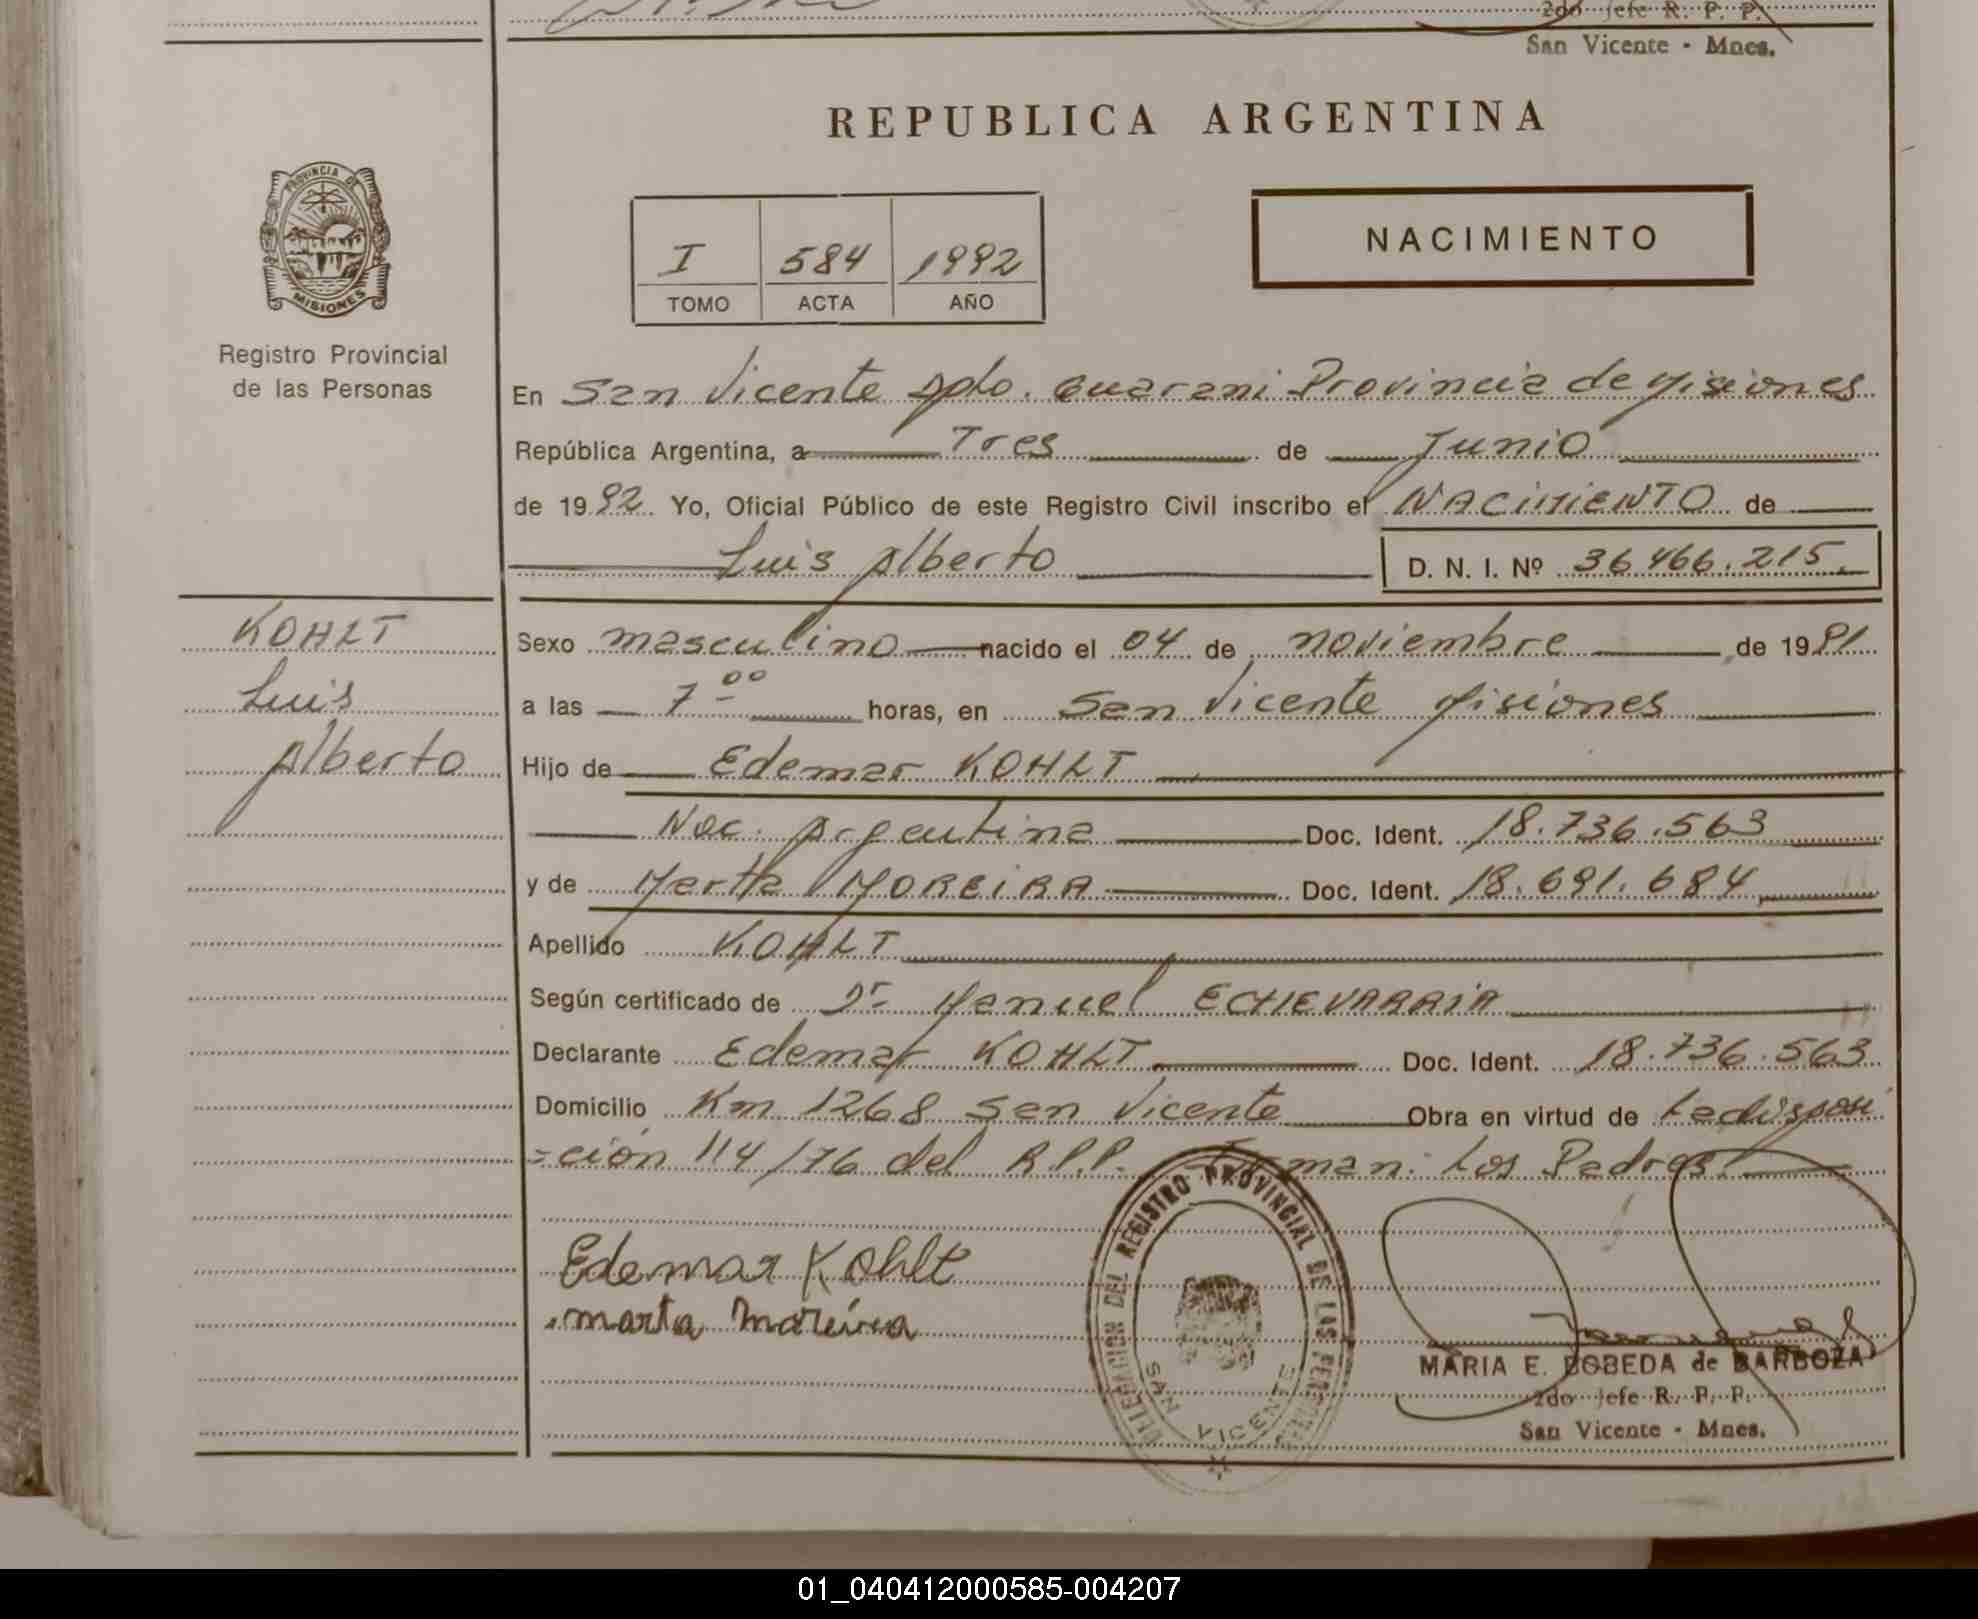 2do Jefe R. P. P.
San Vicente - Mnes.
REPUBLICA ARGENTINA
PROVINCIA DE
MISIONES
Registro Provincial
de las Personas
I 584 1992
TOMO ACTA AÑO
NACIMIENTO
En San Vicente Dpto. Guarani Provincia de Misiones
República Argentina, a Tres de Junio
de 1992. Yo, Oficial Público de este Registro Civil inscribo el NACIMIENTO de
Luis Alberto D. N. I. Nº 36.466.215.
KOHLT
Luis
Alberto
Sexo masculino nacido el 04 de noviembre de 1991
a las 7 00 horas, en San Vicente Misiones
Hijo de Edemar KOHLT
Nac. Argentina Doc. Ident. 18.736.563
y de Marta MOREIRA Doc. Ident. 18.691.684
Apellido KOHLT
Según certificado de Dr Manuel ECHEVARRIA
Declarante Edemar KOHLT Doc. Ident. 18.736.563
Domicilio Km 1268 San Vicente Obra en virtud de La disposi
=ción 114/76 del R.P.P. Firman: Los Padres.
Edemar Kohlt
marta moreira
DELEGACION DEL REGISTRO PROVINCIAL DE LAS PERSONAS
SAN VICENTE
MARIA E. BOBEDA de BARBOZA
2do Jefe R. P. P.
San Vicente - Mnes.
01_040412000585-004207